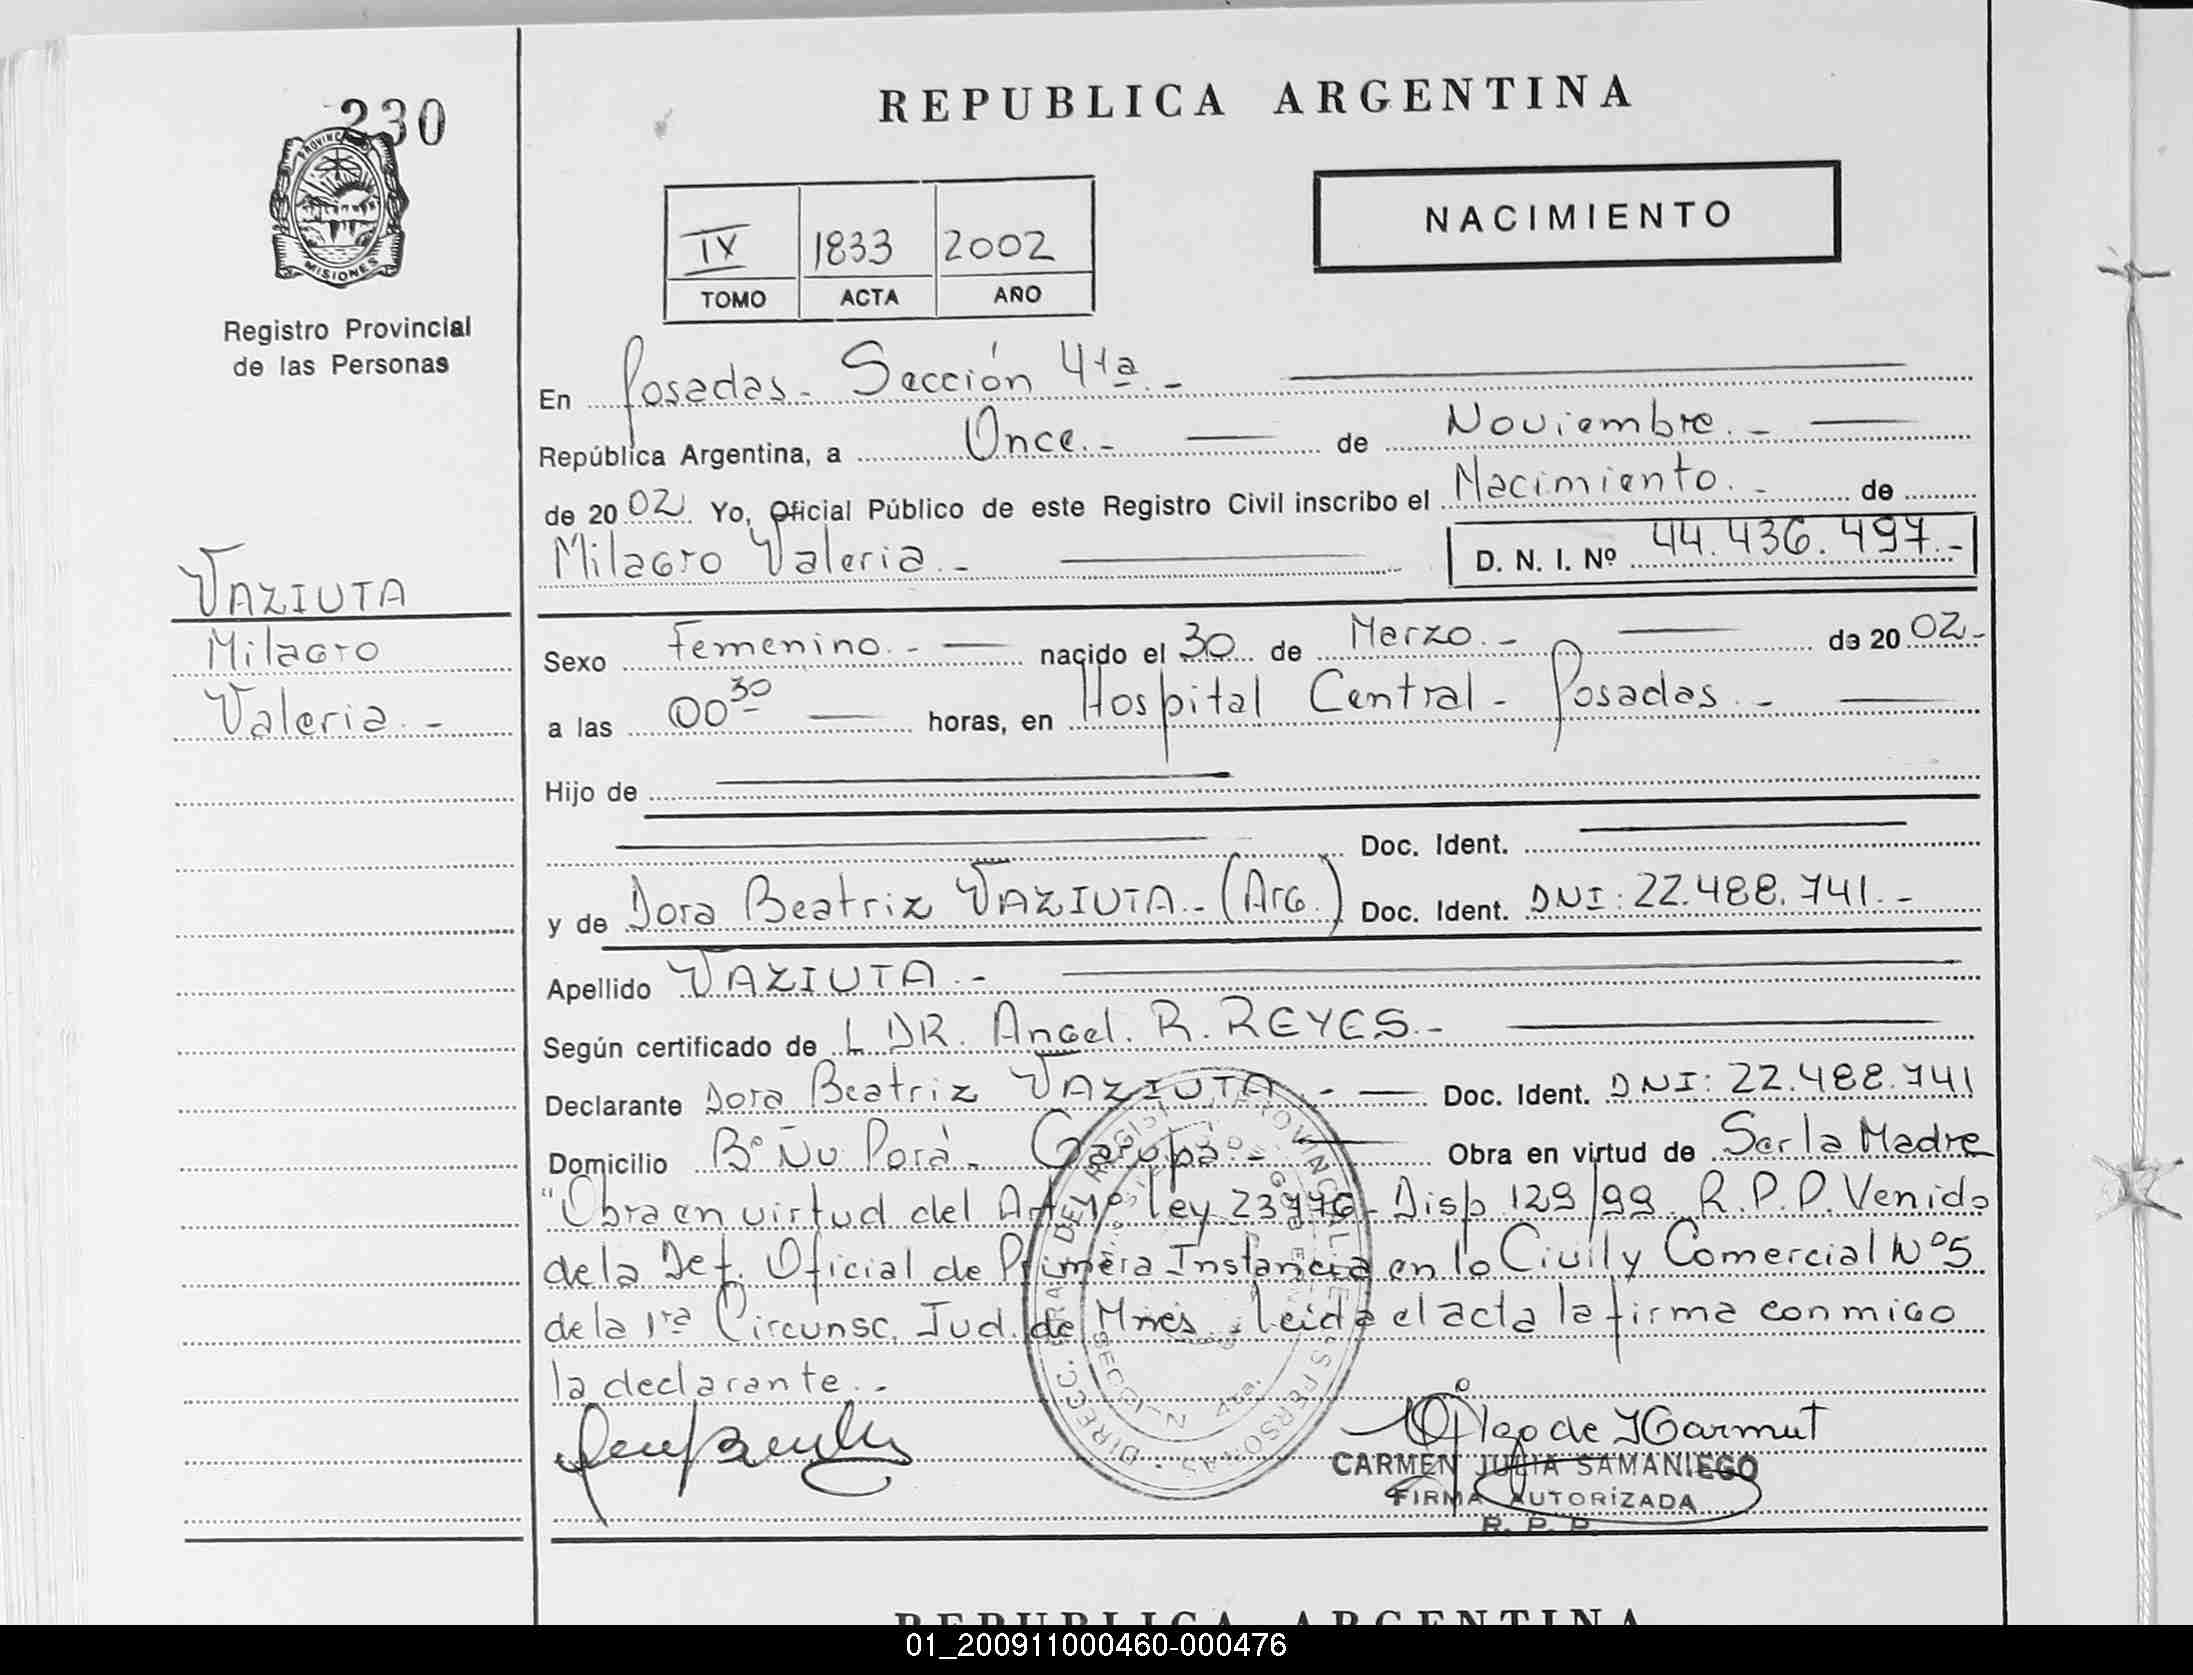 230
PROVINCIA
MISIONES
Registro Provincial
de las Personas
VAZIUTA
Milagro
Valeria.-
REPUBLICA ARGENTINA
NACIMIENTO
IX 1833 2002
TOMO ACTA AÑO
En Posadas - Sección 4ta.-
República Argentina, a Once.- de Noviembre.-
de 20 02 Yo, Oficial Público de este Registro Civil inscribo el Nacimiento.- de
Milagro Valeria.- D. N. I. Nº 44.436.497.-
Sexo Femenino.- nacido el 30 de Marzo.- de 20 02.-
a las 00 30 horas, en Hospital Central - Posadas.-
Hijo de
Doc. Ident.
y de Dora Beatriz VAZIUTA.- (Arg.) Doc. Ident. DNI: 22.488.741.-
Apellido VAZIUTA.-
Según certificado de DR. Angel. R. REYES.-
Declarante Dora Beatriz VAZIUTA.- Doc. Ident. DNI: 22.488.741
Domicilio Bº Ñu Porá - Garupá - Obra en virtud de Ser la Madre
"Obra en virtud del Ley 23776 - Disp 129/99 R.P.P. Venido
de la Def. Oficial de Primera Instancia en lo Civil y Comercial Nº 5
de la 1ra Circunsc. Jud. de Mnes. Leida el acta la firma conmigo
la declarante.-
de Karmut
CARMEN JULIA SAMANIEGO
FIRMA AUTORIZADA
R. P. P.
REPUBLICA ARGENTINA
01_200911000460-000476